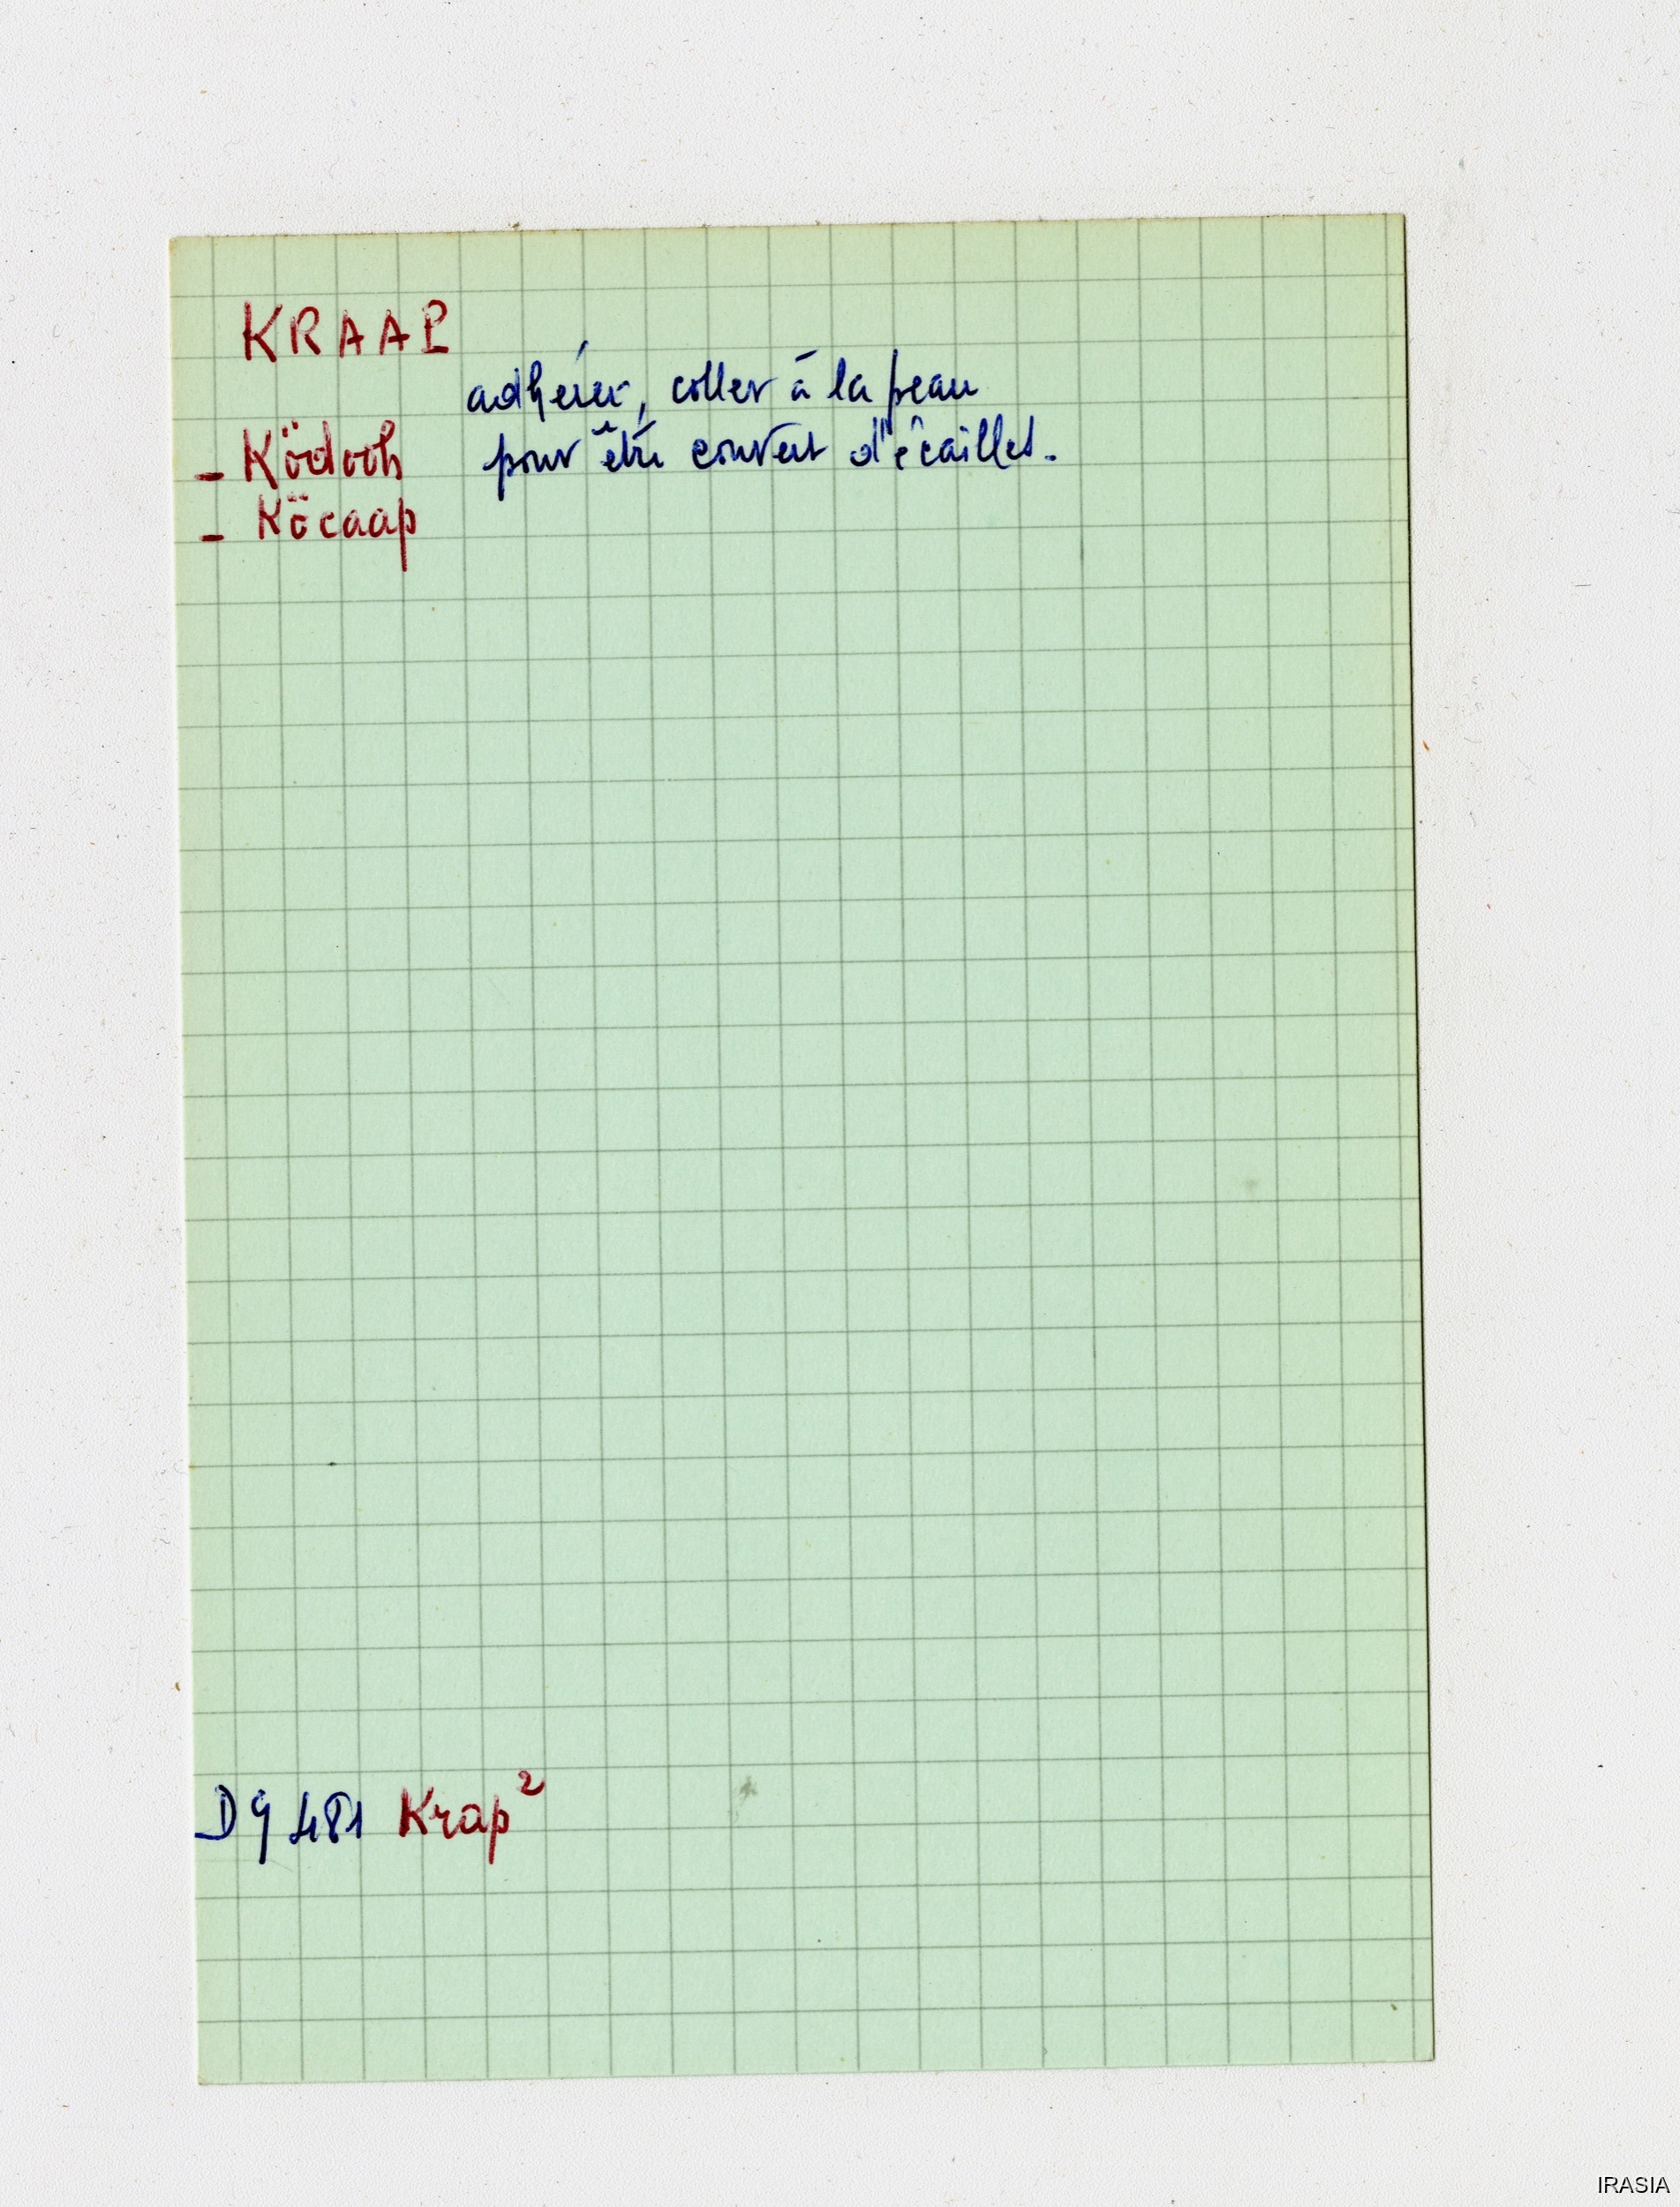 KRAAP
adhérer, coller à la peau
- Ködooh pour être couvert d'écailles.
- Köcaap
D9 481 Krap²
IRASIA